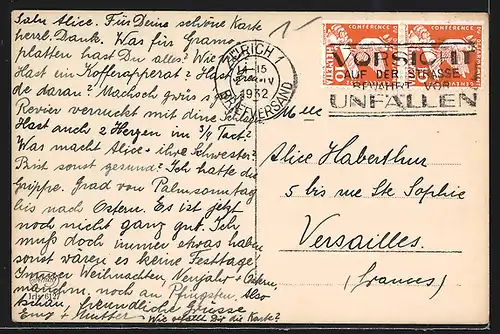 Salu Alice. Für Deine schöne Karte
herzl. Dank. Was für Gramo-
platten hast Du alles? Wie
Hast ein Kofferapperat? Hast
de daran? Machsch
Revier vermuckt mit dine
Hast auch 2 Herzen im 3/4 Takt?
Was macht Alice + ihre Schwester?
Bist sonst gesund? Ich hatte die
Grippe. Grad von Palmsonntag
bis nach Ostern. Es ist jetzt
noch nicht ganz gut. Ich
muß doch immer etwas haben
sonst wären es keine Festtage
Immer Weihnachten, Neujahr + Ostern,
manchm. noch an Pfingsten. Also
tschau, freundliche Grüsse
Emy + Mutter Wie gefällt Dir die Karte?
ZÜRICH 1
1932
BRIEFVERSAND
CONFERENCE
VORSICHT
AUF DER STRASSE
BEWAHRT VOR
UNFÄLLEN
Mlle
Alice Haberthur
5 bis rue Ste Sophie
Versailles.
(France)